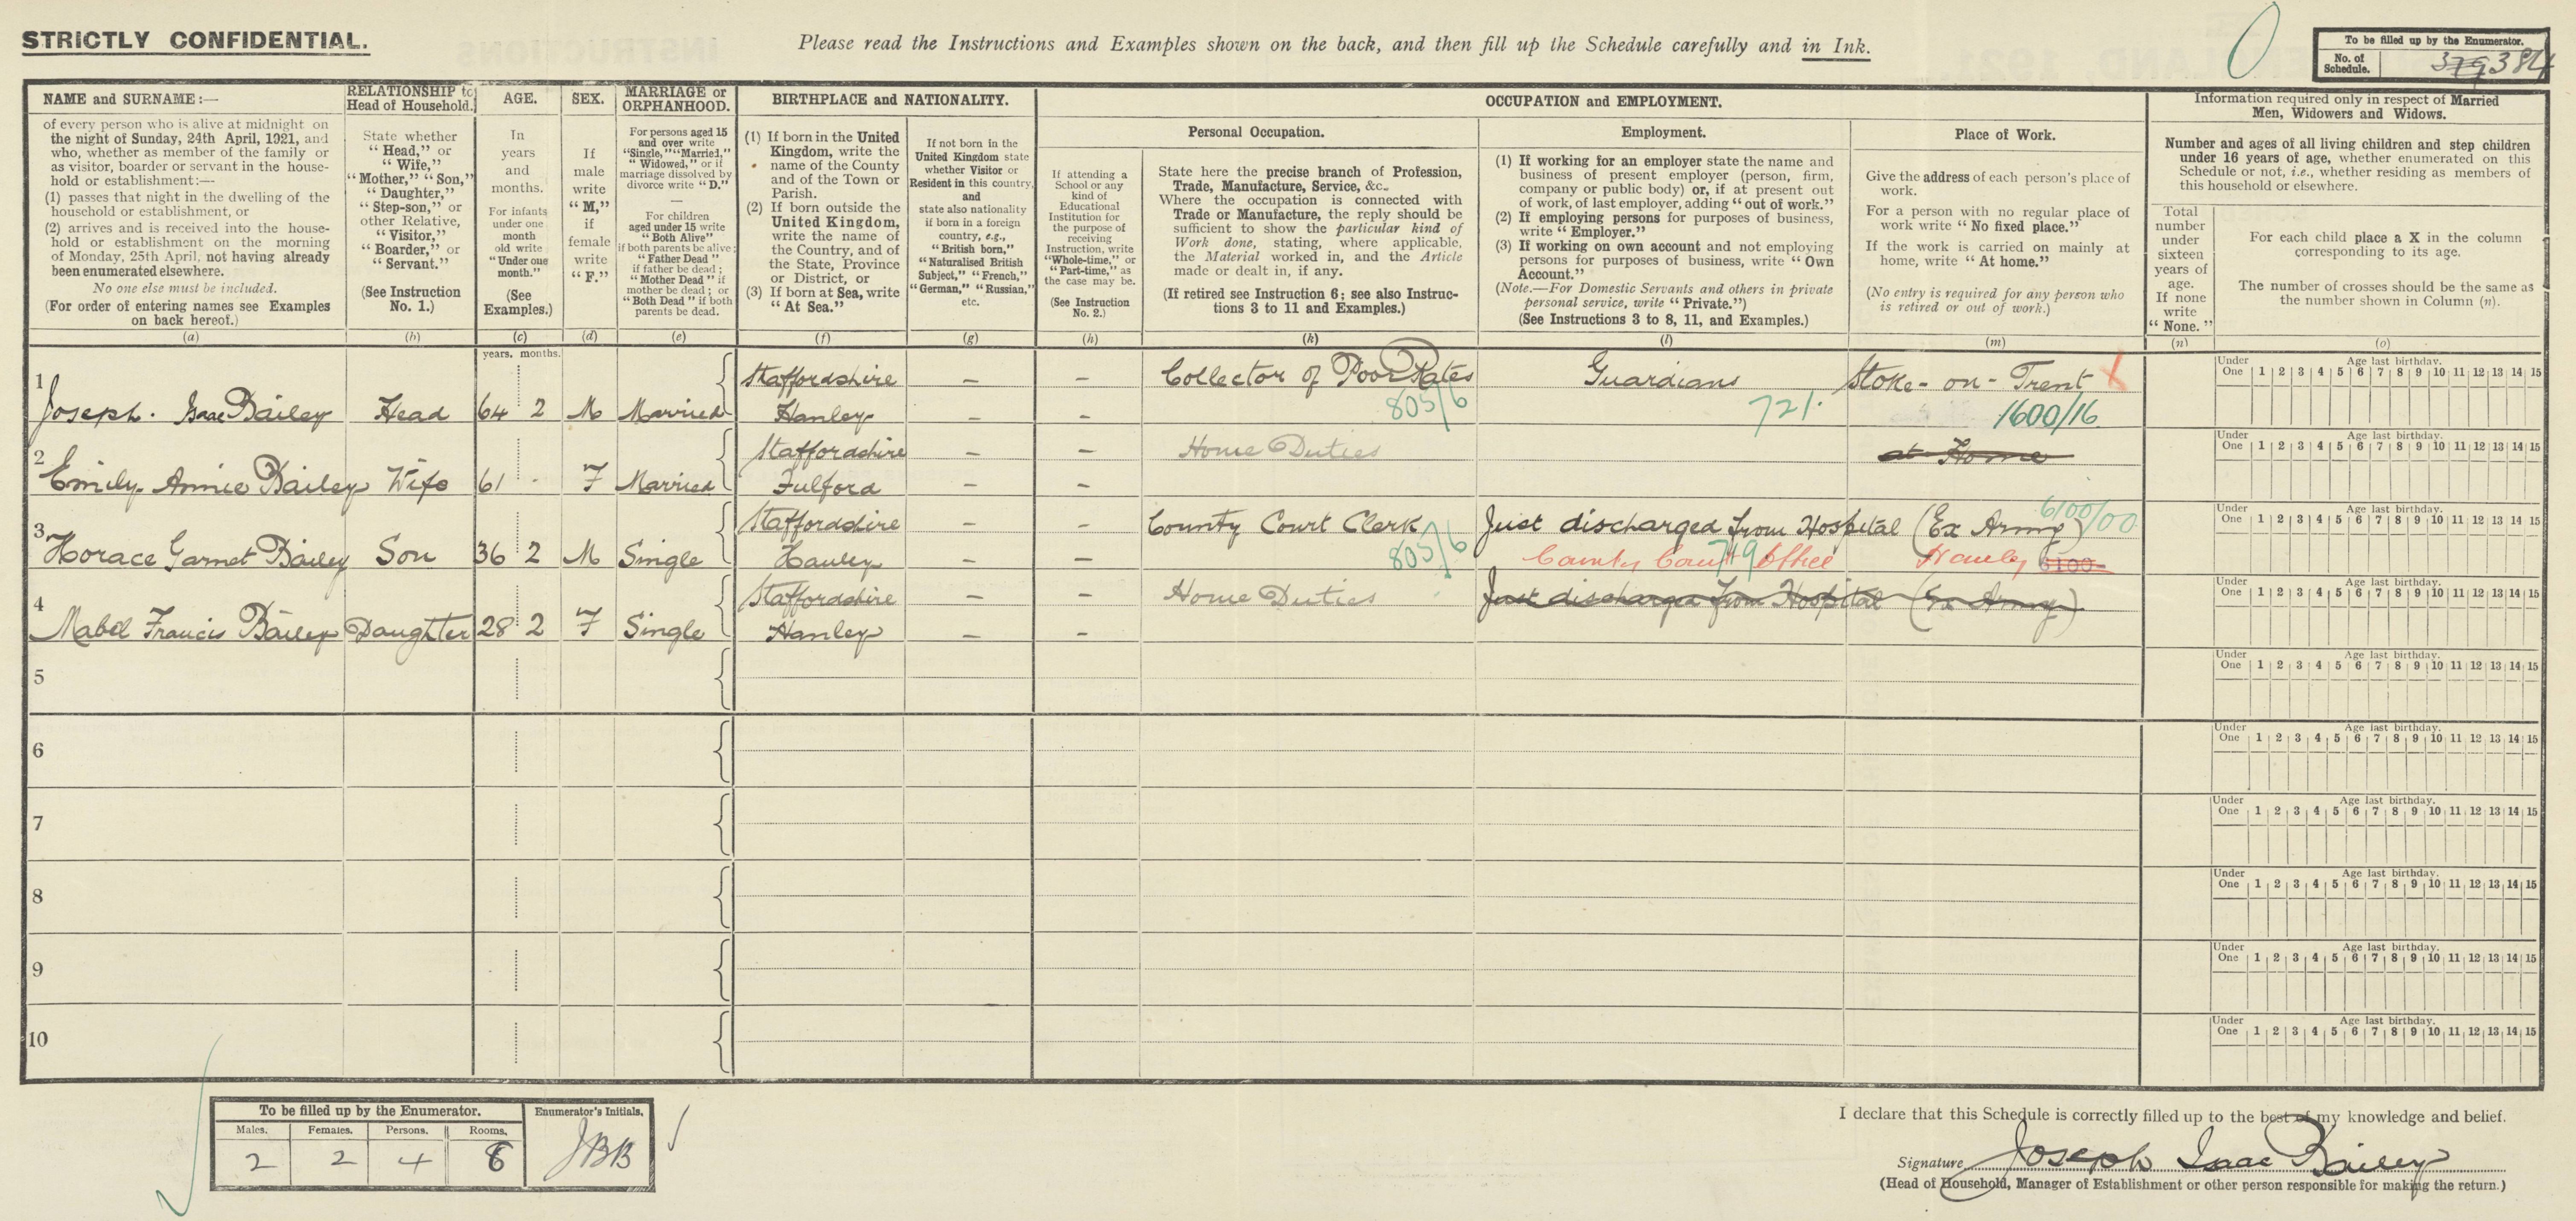 STRICTLY CONFIDENTIAL.
Please read the Instructions and Examples shown on the back, and then fill up the Schedule carefully and in Ink.
To be filled up by the Enumerator.
No. of Schedule. 379 384
NAME and SURNAME:—
of every person who is alive at midnight on
the night of Sunday, 24th April, 1921, and
who, whether as member of the family or
as visitor, boarder or servant in the house-
hold or establishment:—
(1) passes that night in the dwelling of the
household or establishment, or
(2) arrives and is received into the house-
hold or establishment on the morning
of Monday, 25th April, not having already
been enumerated elsewhere.
No one else must be included.
(For order of entering names see Examples
on back hereof.)
(a)
RELATIONSHIP to
Head of Household.
State whether
"Head," or
"Wife,"
"Mother," "Son,"
"Daughter,"
"Step-son," or
other Relative,
"Visitor,"
"Boarder," or
"Servant."
(See Instruction
No. 1.)
(b)
AGE.
In
years
and
months.
For infants
under one
month
old write
"Under one
month."
(See
Examples.)
(c)
SEX.
If
male
write
"M,"
if
female
write
"F."
(d)
MARRIAGE or
ORPHANHOOD.
For persons aged 15
and over write
"Single," "Married,"
"Widowed," or if
marriage dissolved by
divorce write "D."
—
For children
aged under 15 write
"Both Alive"
if both parents be alive;
"Father Dead"
if father be dead;
"Mother Dead" if
mother be dead; or
"Both Dead" if both
parents be dead.
(e)
BIRTHPLACE and NATIONALITY.
(1) If born in the United
Kingdom, write the
name of the County
and of the Town or
Parish.
(2) If born outside the
United Kingdom,
write the name of
the Country, and of
the State, Province
or District, or
(3) If born at Sea, write
"At Sea."
(f)
If not born in the
United Kingdom state
whether Visitor or
Resident in this country,
and
state also nationality
if born in a foreign
country, e.g.,
"British born,"
"Naturalised British
Subject," "French,"
"German," "Russian,"
etc.
(g)
OCCUPATION and EMPLOYMENT.
If attending a
School or any
kind of
Educational
Institution for
the purpose of
receiving
Instruction, write
"Whole-time," or
"Part-time," as
the case may be.
(See Instruction
No. 2.)
(h)
Personal Occupation.
State here the precise branch of Profession,
Trade, Manufacture, Service, &c.
Where the occupation is connected with
Trade or Manufacture, the reply should be
sufficient to show the particular kind of
Work done, stating, where applicable,
the Material worked in, and the Article
made or dealt in, if any.
(If retired see Instruction 6; see also Instruc-
tions 3 to 11 and Examples.)
(k)
Employment.
(1) If working for an employer state the name and
business of present employer (person, firm,
company or public body) or, if at present out
of work, of last employer, adding "out of work."
(2) If employing persons for purposes of business,
write "Employer."
(3) If working on own account and not employing
persons for purposes of business, write "Own
Account."
(Note.—For Domestic Servants and others in private
personal service, write "Private.")
(See Instructions 3 to 8, 11, and Examples.)
(l)
Place of Work.
Give the address of each person's place of
work.
For a person with no regular place of
work write "No fixed place."
If the work is carried on mainly at
home, write "At home."
(No entry is required for any person who
is retired or out of work.)
(m)
Information required only in respect of Married
Men, Widowers and Widows.
Number and ages of all living children and step children
under 16 years of age, whether enumerated on this
Schedule or not, i.e., whether residing as members of
this household or elsewhere.
Total
number
under
sixteen
years of
age.
If none
write
"None."
(n)
For each child place a X in the column
corresponding to its age.
The number of crosses should be the same as
the number shown in Column (n).
(o)
years. months.
1 Joseph. Isaac Bailey Head 64 2 M Married Staffordshire Hanley – – Collector of Poor Rates 805/6 Guardians 721. Stoke-on-Trent 1600/16
Under One Age last birthday. 1 2 3 4 5 6 7 8 9 10 11 12 13 14 15
2 Emily Annie Bailey Wife 61 - F Married Staffordshire Fulford – – Home Duties at Home
Under One Age last birthday. 1 2 3 4 5 6 7 8 9 10 11 12 13 14 15
3 Horace Garnet Bailey Son 36 2 M Single Staffordshire Hanley – – County Court Clerk 805/6 Just discharged from Hospital (Ex Army) 6100/00 County Court Office 719 Hanley 6100
Under One Age last birthday. 1 2 3 4 5 6 7 8 9 10 11 12 13 14 15
4 Mabel Francis Bailey Daughter 28 2 F Single Staffordshire Hanley – – Home Duties Just discharged from Hospital (Ex Army)
Under One Age last birthday. 1 2 3 4 5 6 7 8 9 10 11 12 13 14 15
5
Under One Age last birthday. 1 2 3 4 5 6 7 8 9 10 11 12 13 14 15
6
Under One Age last birthday. 1 2 3 4 5 6 7 8 9 10 11 12 13 14 15
7
Under One Age last birthday. 1 2 3 4 5 6 7 8 9 10 11 12 13 14 15
8
Under One Age last birthday. 1 2 3 4 5 6 7 8 9 10 11 12 13 14 15
9
Under One Age last birthday. 1 2 3 4 5 6 7 8 9 10 11 12 13 14 15
10
Under One Age last birthday. 1 2 3 4 5 6 7 8 9 10 11 12 13 14 15
To be filled up by the Enumerator.
Males. Females. Persons. Rooms.
2 2 4 8
Enumerator's Initials.
JBB
I declare that this Schedule is correctly filled up to the best of my knowledge and belief.
Signature Joseph Isaac Bailey
(Head of Household, Manager of Establishment or other person responsible for making the return.)